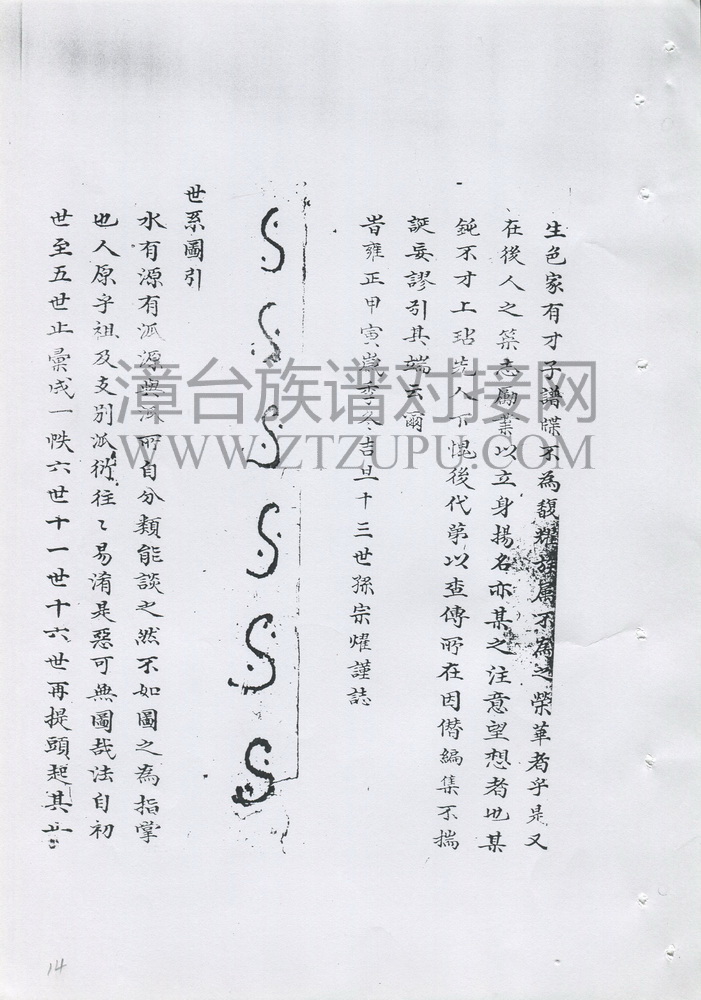 生色家有才子譜牒不為馥耀族属不為之榮華者乎是又
在後人之篤志勵業以立身揚名亦某之注意望想者也某
鈍不才上玷先人下愧後代第以查傳所在因僭編集不揣
誕妄謬引其端云爾
旹雍正甲寅歲季冬吉旦十三世孫宗燿謹誌
世系圖引
水有源有派源與派所自分類能談之然不如圖之為指掌
也人原乎祖及支別派衍往〻易淆是惡可無圖哉法自初
世至五世止彙成一帙六世十一世十六世再提頭起其止
漳台族谱对接网
WWW.ZTZUPU.COM
14